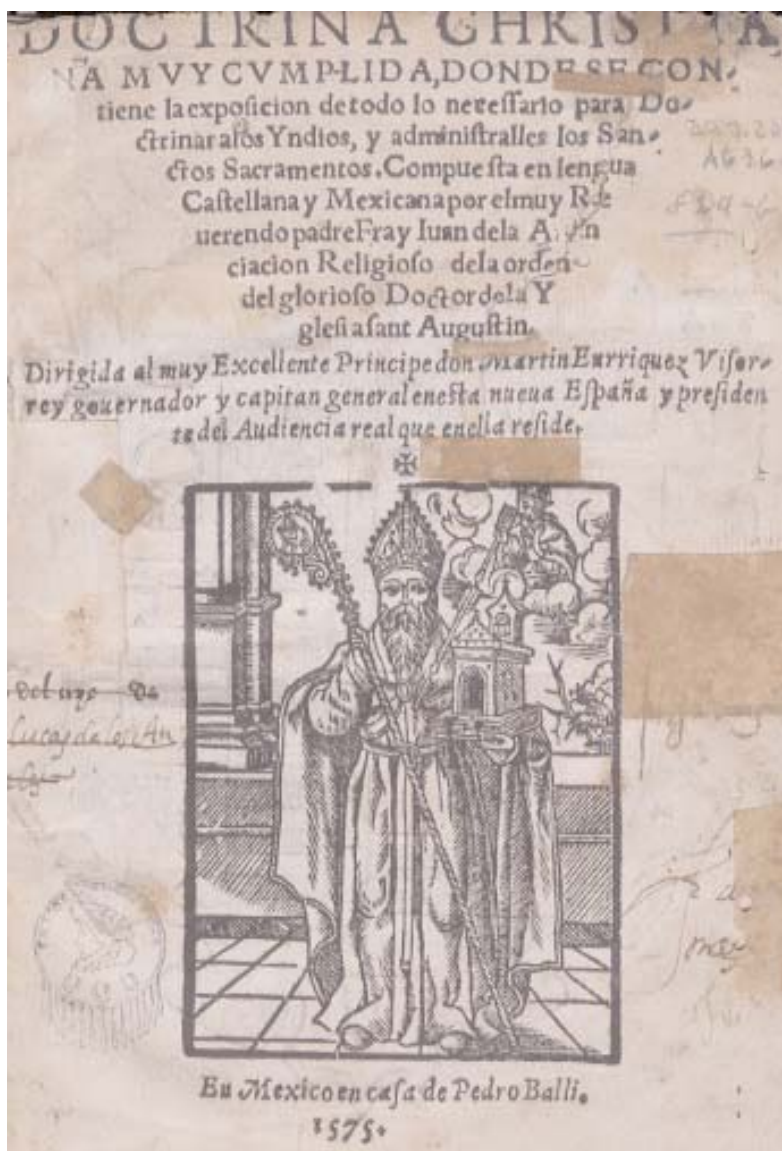 DOCTRINA CHRISTIA
NA MVY CVMPLIDA, DONDE SE CON-
tiene la exposicion de todo lo necessario para Do-
ctrinar a los Yndios, y administralles los San-
ctos Sacramentos. Compuesta en lengua
Castellana y Mexicana por el muy Re
uerendo padre Fray Iuan de la Anun
ciacion Religioso de la orden
del glorioso Doctor de la Y
glesia sant Augustin.
Dirigida al muy Excellente Principe don Martin Enrriquez Visor-
rey gouernador y capitan general en esta nueua España y presiden
te del Audiencia real que en ella reside.
✠
del uso de
Lucas de los An
En Mexico en casa de Pedro Balli.
1575.